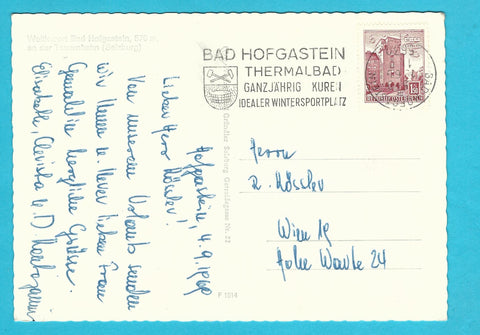 Weltkurort Bad Hofgastein, 870 m,
an der Tauernbahn (Salzburg)
BAD HOFGASTEIN
THERMALBAD
GANZJÄHRIG KUREN
IDEALER WINTERSPORTPLATZ
REPUBLIK ÖSTERREICH
Hofgastein, 4.9.1960
Lieber Herr Rössler!
Von unserem Urlaub senden
wir Ihnen u. Ihrer lieben Frau
Gemahlin herzliche Grüsse.
Elisabeth, Christa u. D.
Salzburg
Nr. 22
F 1914
Herrn
R. Rössler
Wien 19
Hohe Warte 24